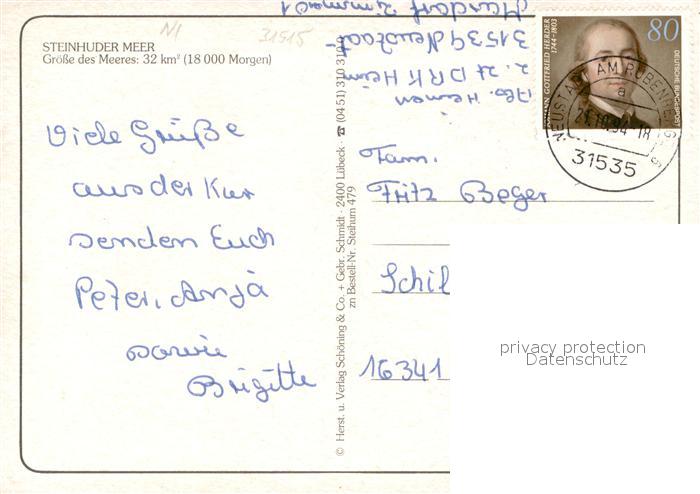 STEINHUDER MEER
Größe des Meeres: 32 km² (18 000 Morgen)
N1
31515
Viele Grüße
aus der Kur
senden Euch
Peter, Anja
sowie
Brigitte
© Herst. u. Verlag Schöning & Co. + Gebr. Schmidt · 2400 Lübeck · ☎ (04 51) 310 310
zn Bestell-Nr. Steihum 479
Abs.
z. Zt DRK Heim
31539 Neustadt-
Mardorf
JOHANN GOTTFRIED HERDER
1744-1803
80
DEUTSCHE BUNDESPOST
NEUSTADT AM RÜBENBERGE
a
94-18
31535
Fam.
Fritz Beger
Schil
16341
privacy protection
Datenschutz